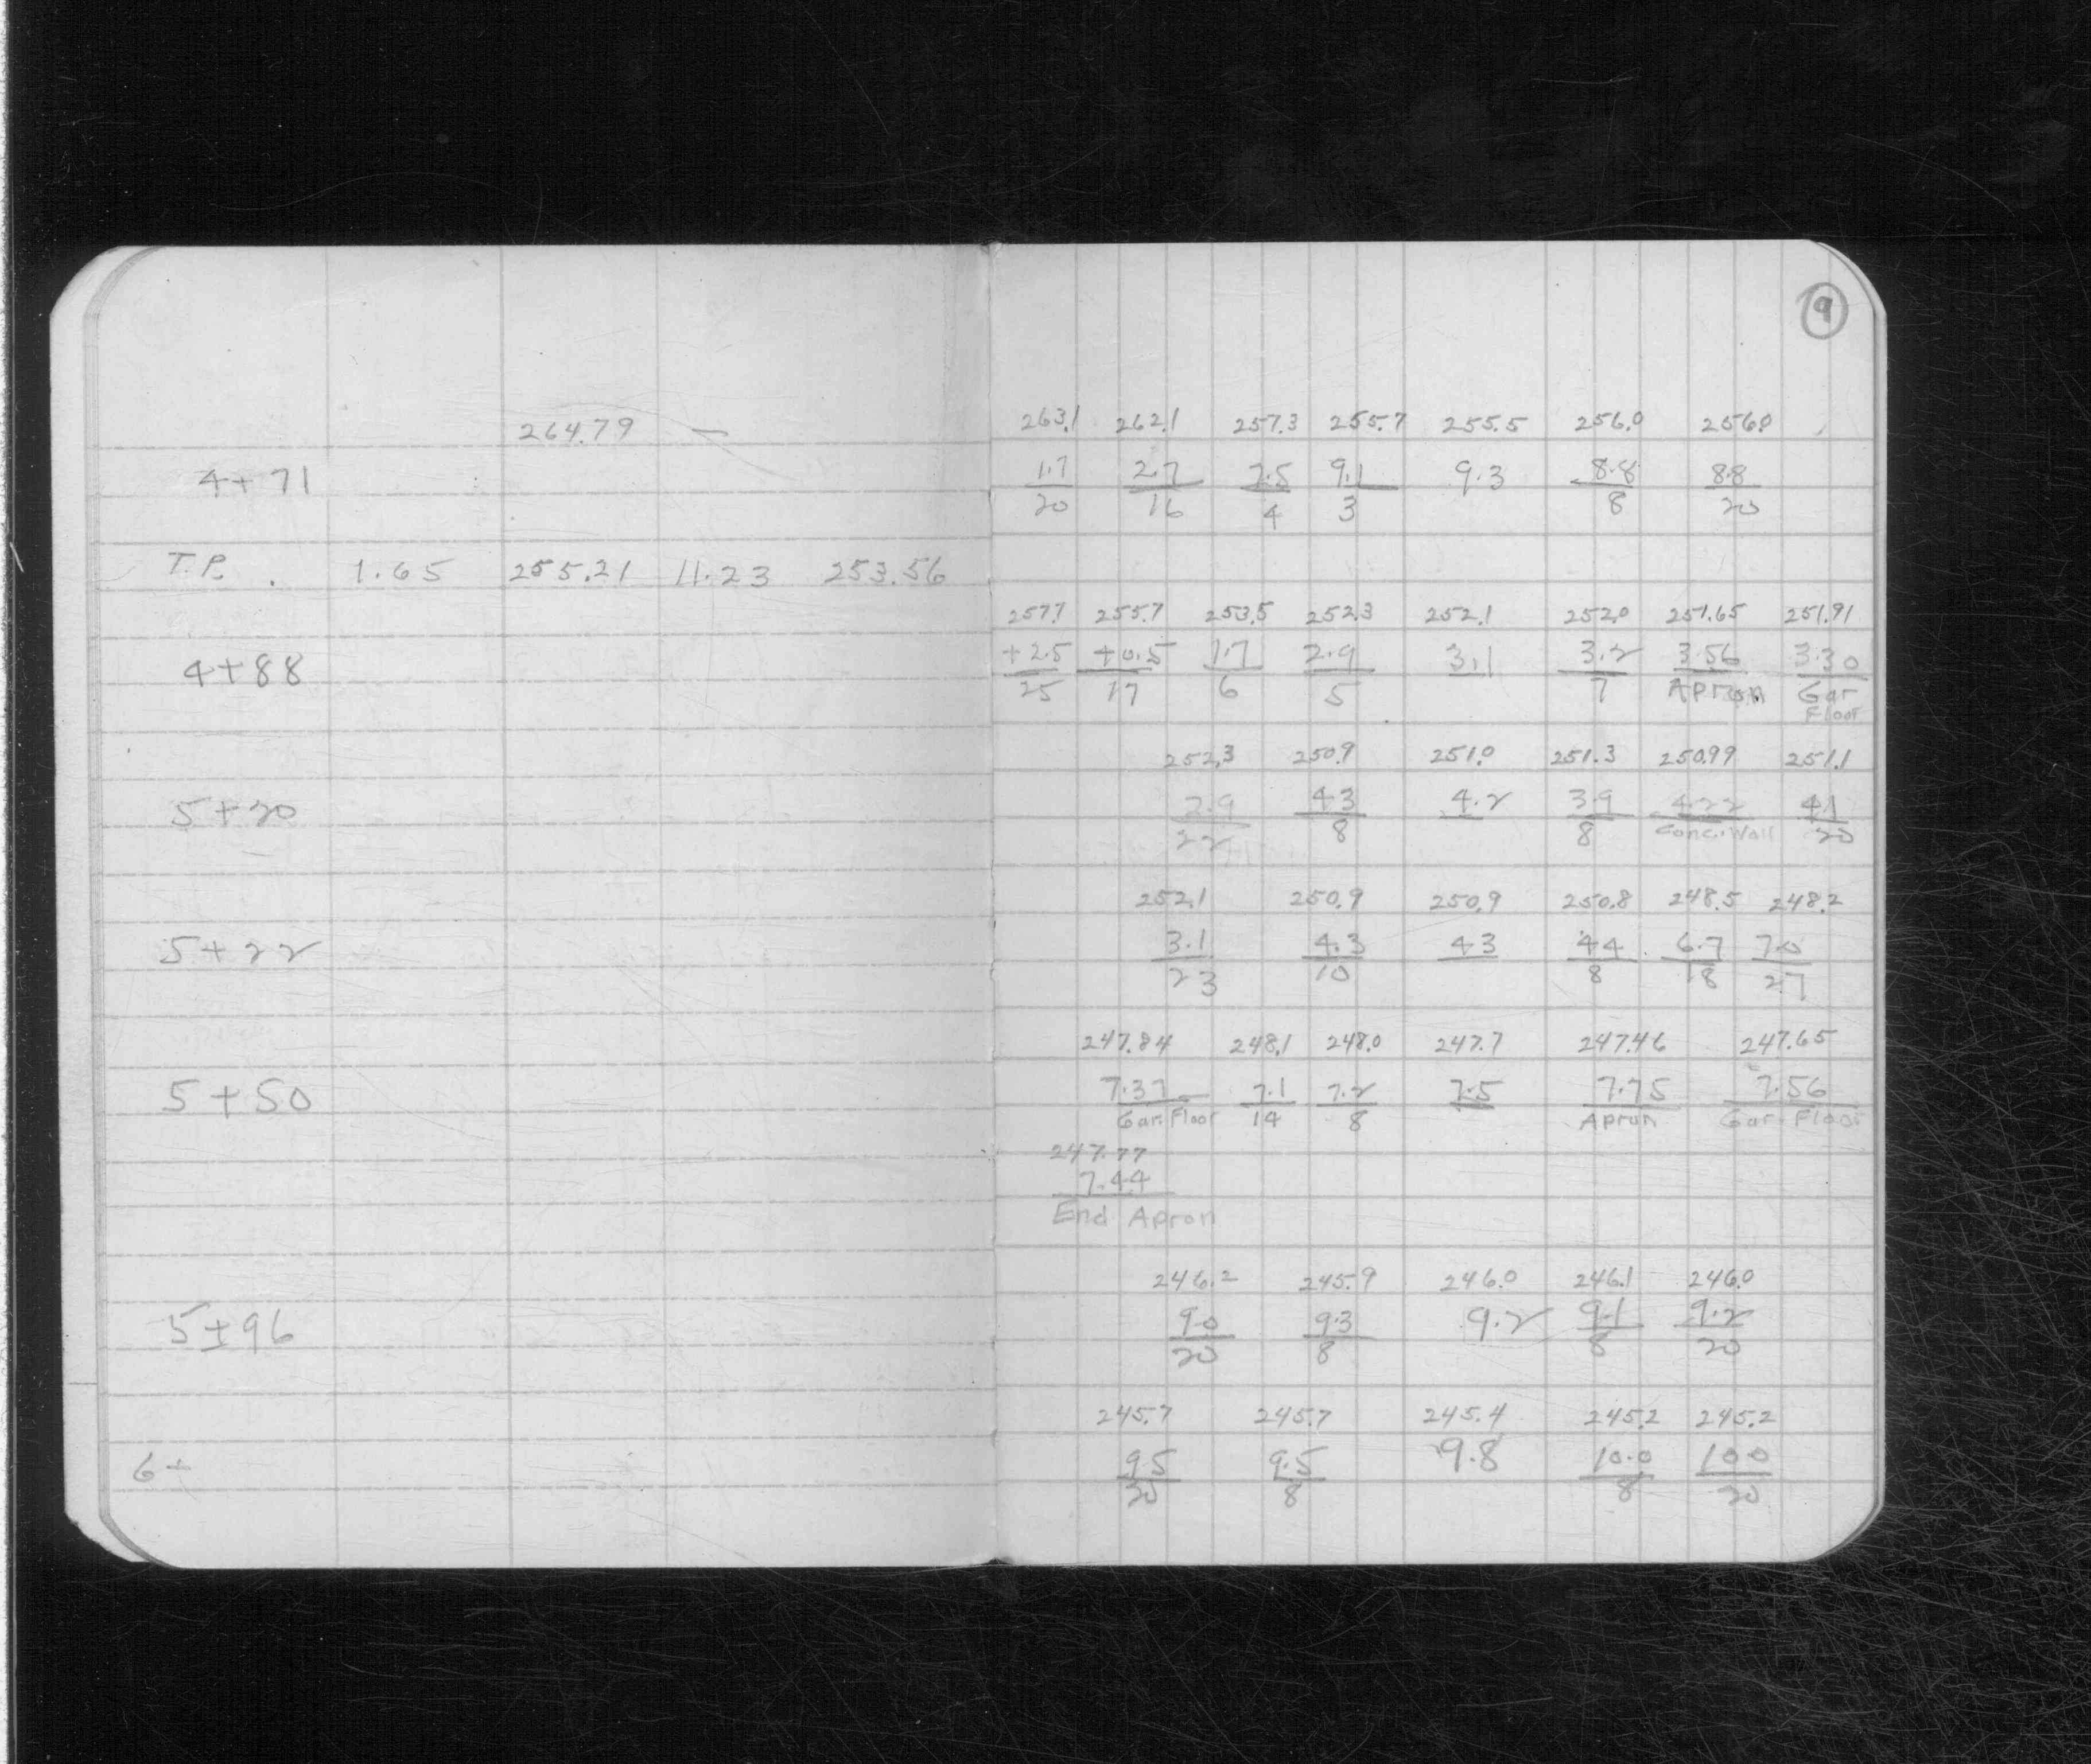 9
264.79 — 263.1 262.1 257.3 255.7 255.5 256.0 256.0
4+71 1.7 2.7 7.5 9.1 9.3 8.8 8.8
20 16 4 3 8 20
T.P. 1.65 255.21 11.23 253.56
257.7 255.7 253.5 252.3 252.1 252.0 251.65 251.91
4+88 +2.5 +0.5 1.7 2.9 3.1 3.2 3.56 3.30
25 17 6 5 7 Apron Gar
Floor
252.3 250.9 251.0 251.3 250.99 251.1
5+20 2.9 4.3 4.2 3.9 4.22 4.1
22 8 8 Conc. Wall 20
252.1 250.9 250.9 250.8 248.5 248.2
5+22 3.1 4.3 4.3 4.4 6.7 7.0
23 10 8 18 27
247.84 248.1 248.0 247.7 247.46 247.65
5+50 7.37 7.1 7.2 7.5 7.75 7.56
Gar. Floor 14 8 Apron Gar. Floor
247.77
7.44
End Apron
246.2 245.9 246.0 246.1 246.0
5+96 9.0 9.3 9.2 9.1 9.2
20 8 8 20
245.7 245.7 245.4 245.2 245.2
6+ 9.5 9.5 9.8 10.0 10.0
20 8 8 20